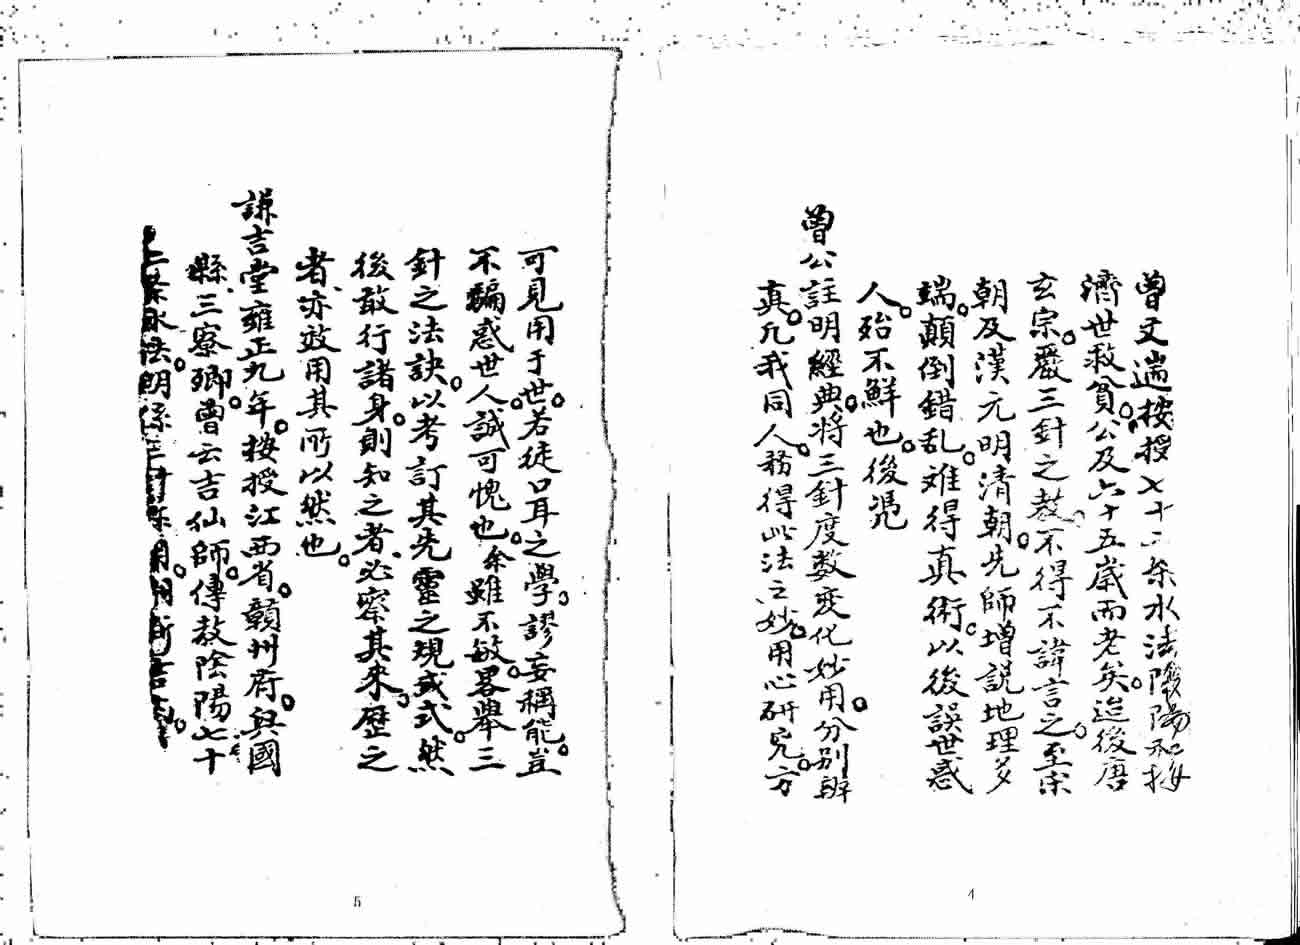 曾文遄按授七十二条水法陰陽和按
濟世救貧。公及六十五歲而老矣。迨後唐
玄宗。嚴三針之教。不得不諱言之。至宋
朝及漢元明清朝。先師增説地理多
端。顛倒錯乱。难得真術。以後誤世惑
人。殆不鮮也。後凭
曾公註明經典。将三針度数变化妙用。分别辨
真。凡我同人。務得此法之妙。用心研究。方
4
可見用于世。若徒口耳之學。謬妄稱能。豈
不騙惑世人。誠可愧也。余雖不敏。畧舉三
針之法訣。以考訂其先靈之規式。然
後敢行諸身。則知之者、必察其来歷之
者、亦效用其所以然也。
謙吉堂雍正九年。按授江西省。贛州府。興國
縣、三寮卿。曾云吉仙師。傳教陰陽七十
二条水法。
5